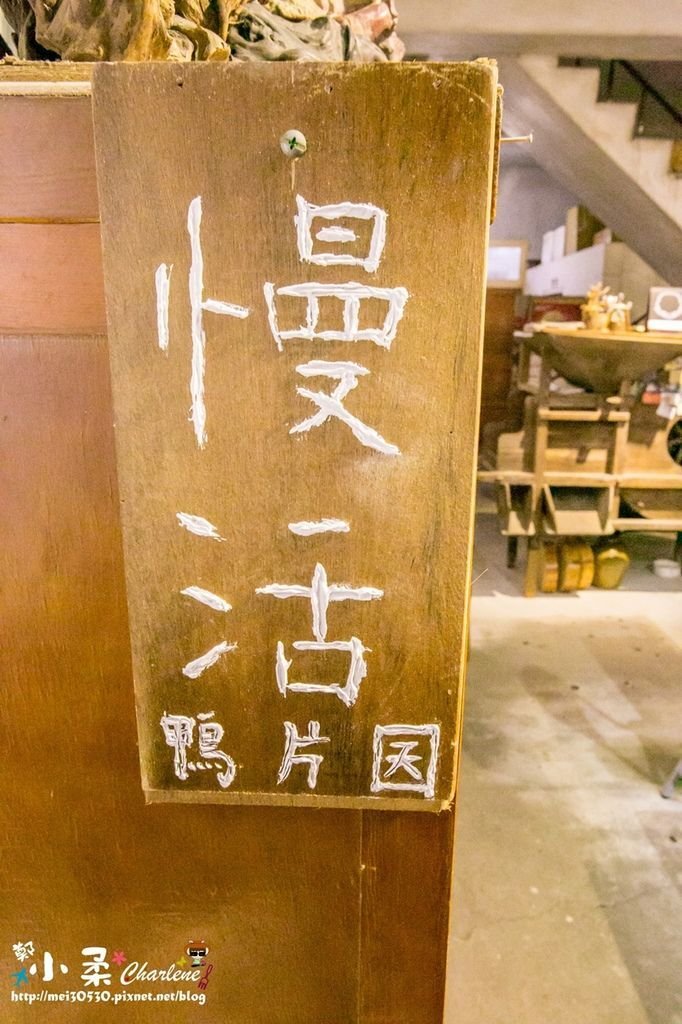 慢
活
鴨片因
鄭小柔Charlene
http://mei30530.pixnet.net/blog